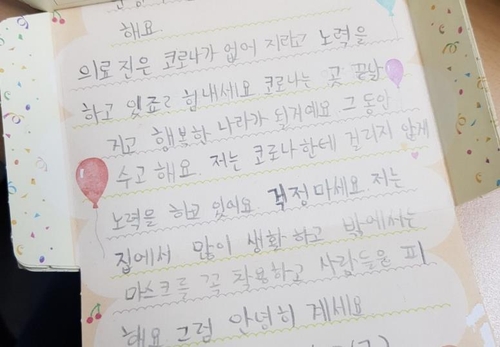 해요.
의료 진은 코로나가 없어 지라고 노력을
하고 있죠? 힘내세요 코로나는 곳 끝날
지고 행복한 나라가 될거예요 그 동안
수고 해요. 저는 코로나한테 걸리지 않게
노력을 하고 있어요 걱정마세요 저는
집에서 많이 생활 하고 밖에서는
마스크를 꼭 착용하고 사람들을 피
해요 그럼 안녕히 계세요